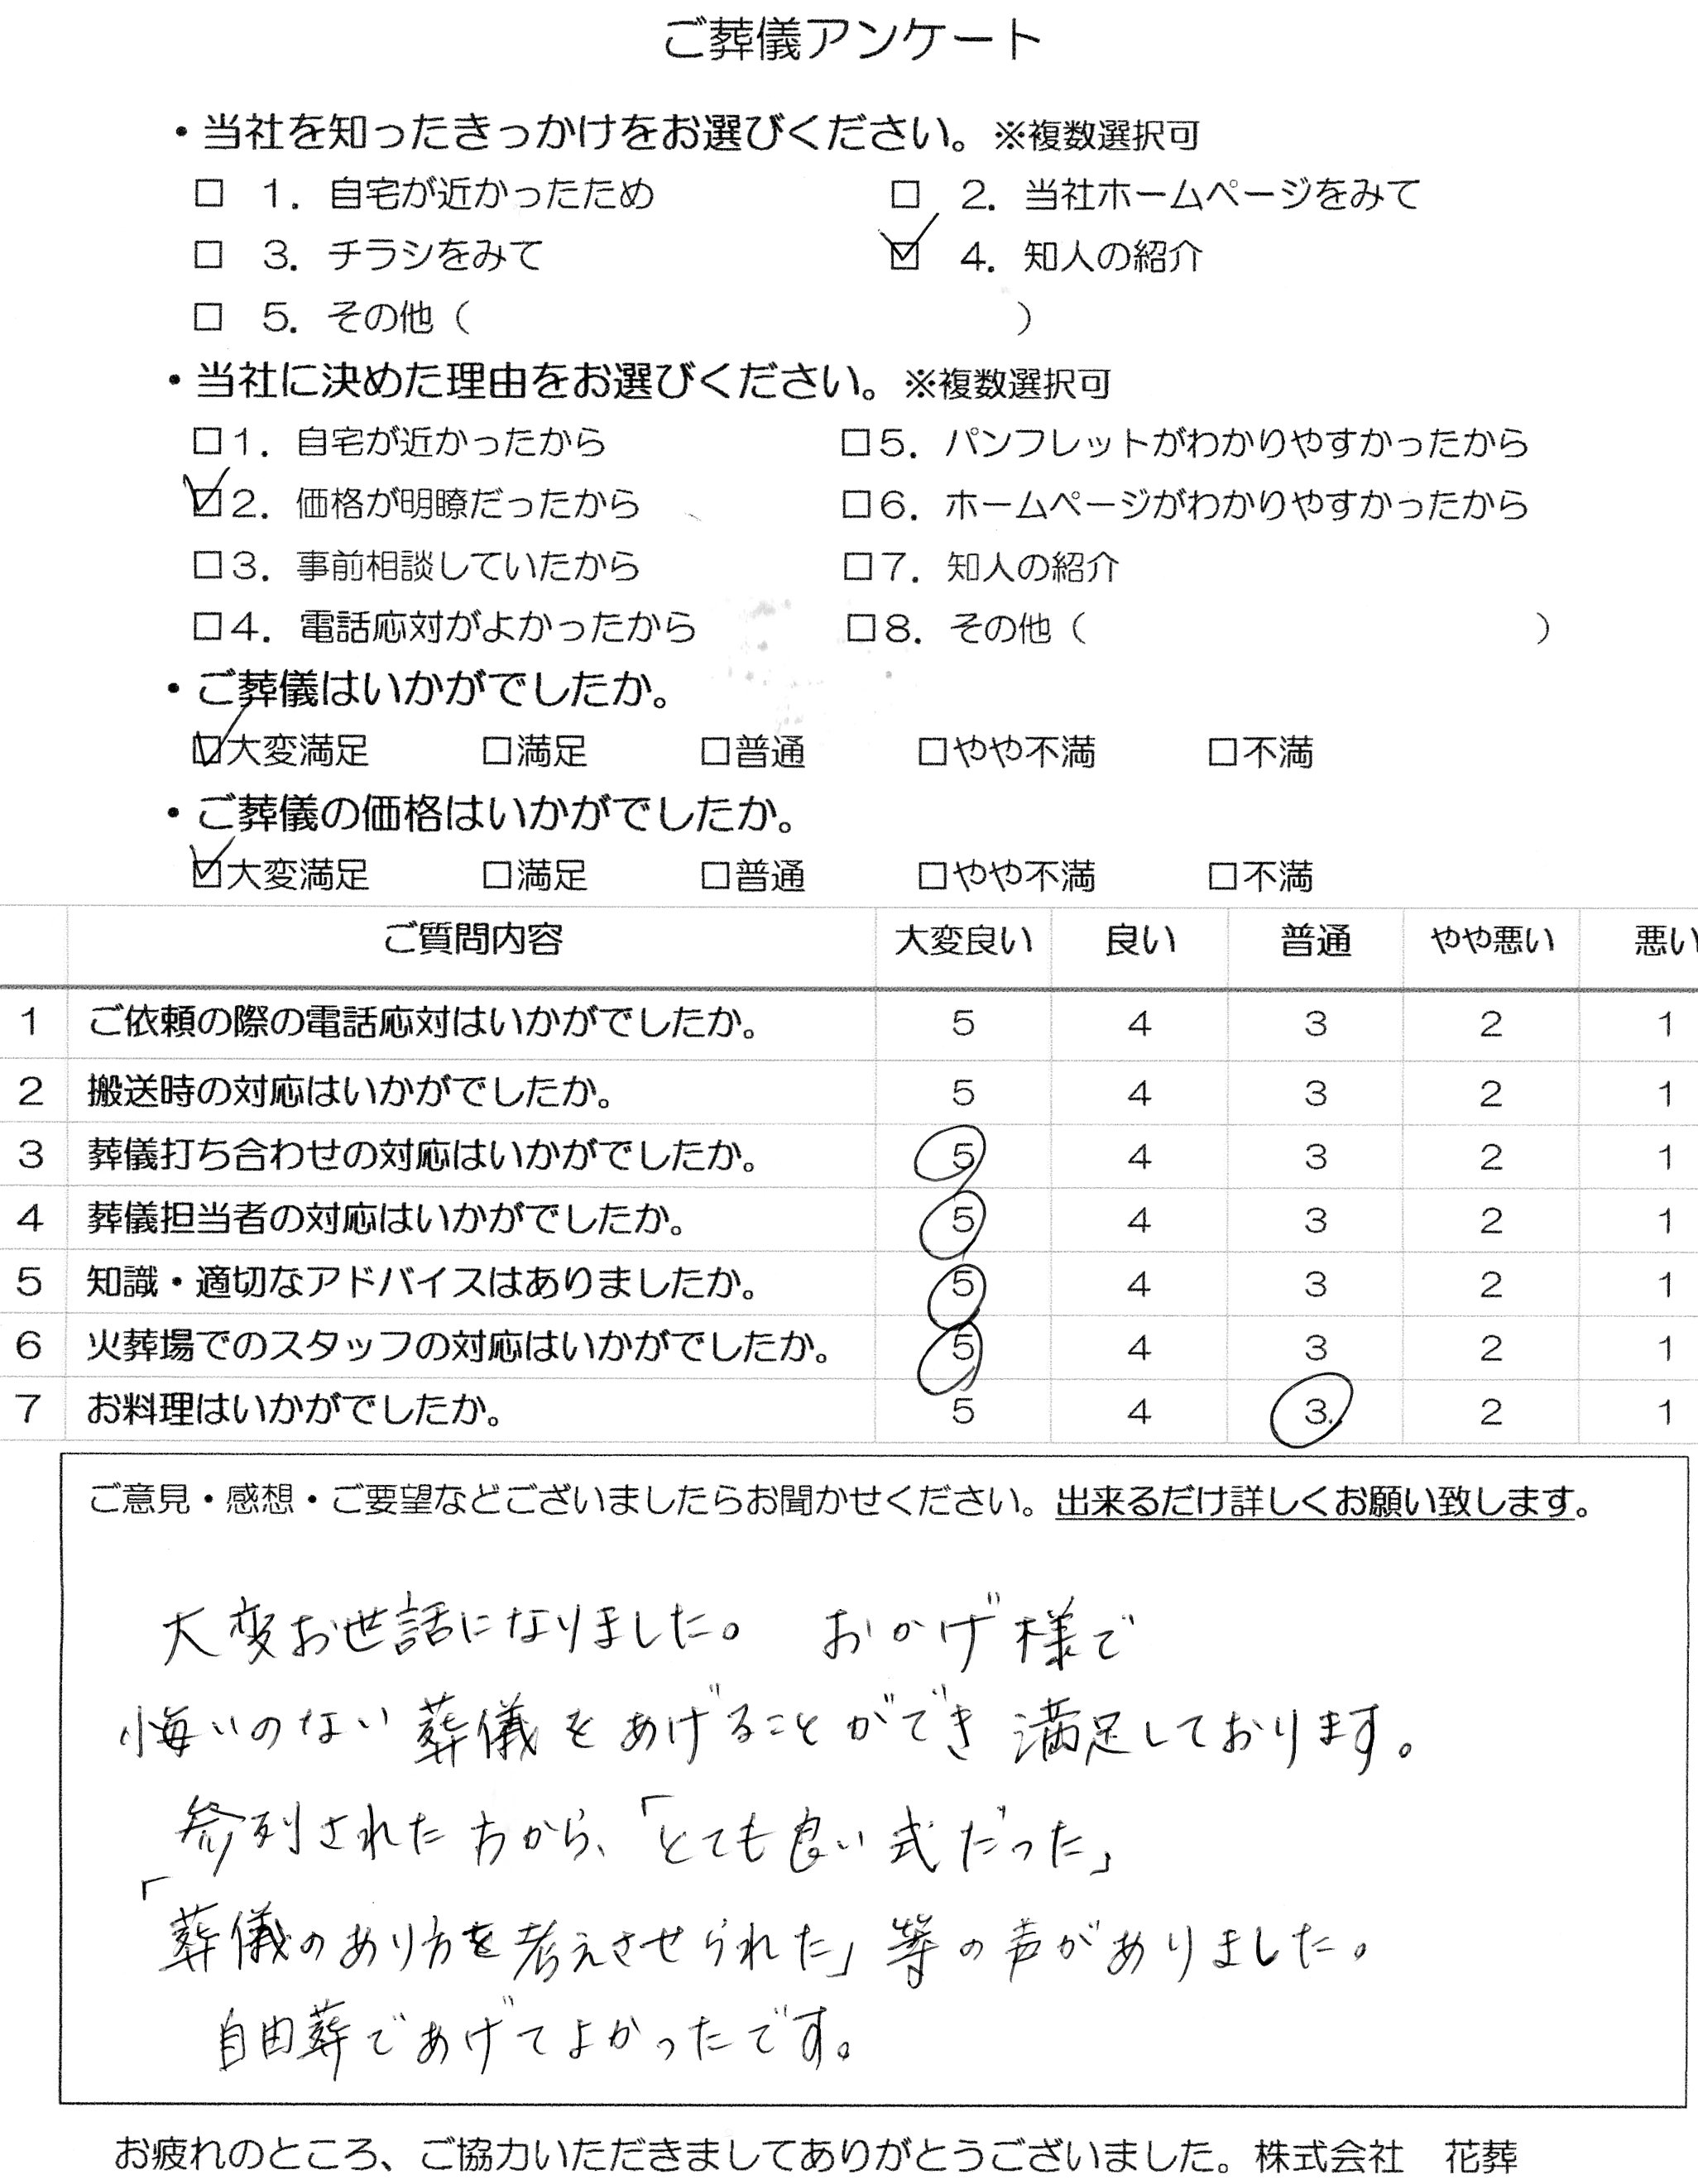 ご葬儀アンケート
・当社を知ったきっかけをお選びください。※複数選択可
□ 1．自宅が近かったため □ 2．当社ホームページをみて
□ 3．チラシをみて ☑ 4．知人の紹介
□ 5．その他（ ）
・当社に決めた理由をお選びください。※複数選択可
□1．自宅が近かったから □5．パンフレットがわかりやすかったから
☑2．価格が明瞭だったから □6．ホームページがわかりやすかったから
□3．事前相談していたから □7．知人の紹介
□4．電話応対がよかったから □8．その他（ ）
・ご葬儀はいかがでしたか。
☑大変満足 □満足 □普通 □やや不満 □不満
・ご葬儀の価格はいかがでしたか。
☑大変満足 □満足 □普通 □やや不満 □不満
ご質問内容 大変良い 良い 普通 やや悪い 悪い
1 ご依頼の際の電話応対はいかがでしたか。 5 4 3 2 1
2 搬送時の対応はいかがでしたか。 5 4 3 2 1
3 葬儀打ち合わせの対応はいかがでしたか。 5 4 3 2 1
4 葬儀担当者の対応はいかがでしたか。 5 4 3 2 1
5 知識・適切なアドバイスはありましたか。 5 4 3 2 1
6 火葬場でのスタッフの対応はいかがでしたか。 5 4 3 2 1
7 お料理はいかがでしたか。 5 4 3 2 1
ご意見・感想・ご要望などございましたらお聞かせください。出来るだけ詳しくお願い致します。
大変お世話になりました。 おかげ様で
悔いのない葬儀をあげることができ満足しております。
参列された方から、「とても良い式だった」
「葬儀のあり方を考えさせられた」等の声がありました。
自由葬であげてよかったです。
お疲れのところ、ご協力いただきましてありがとうございました。株式会社 花葬